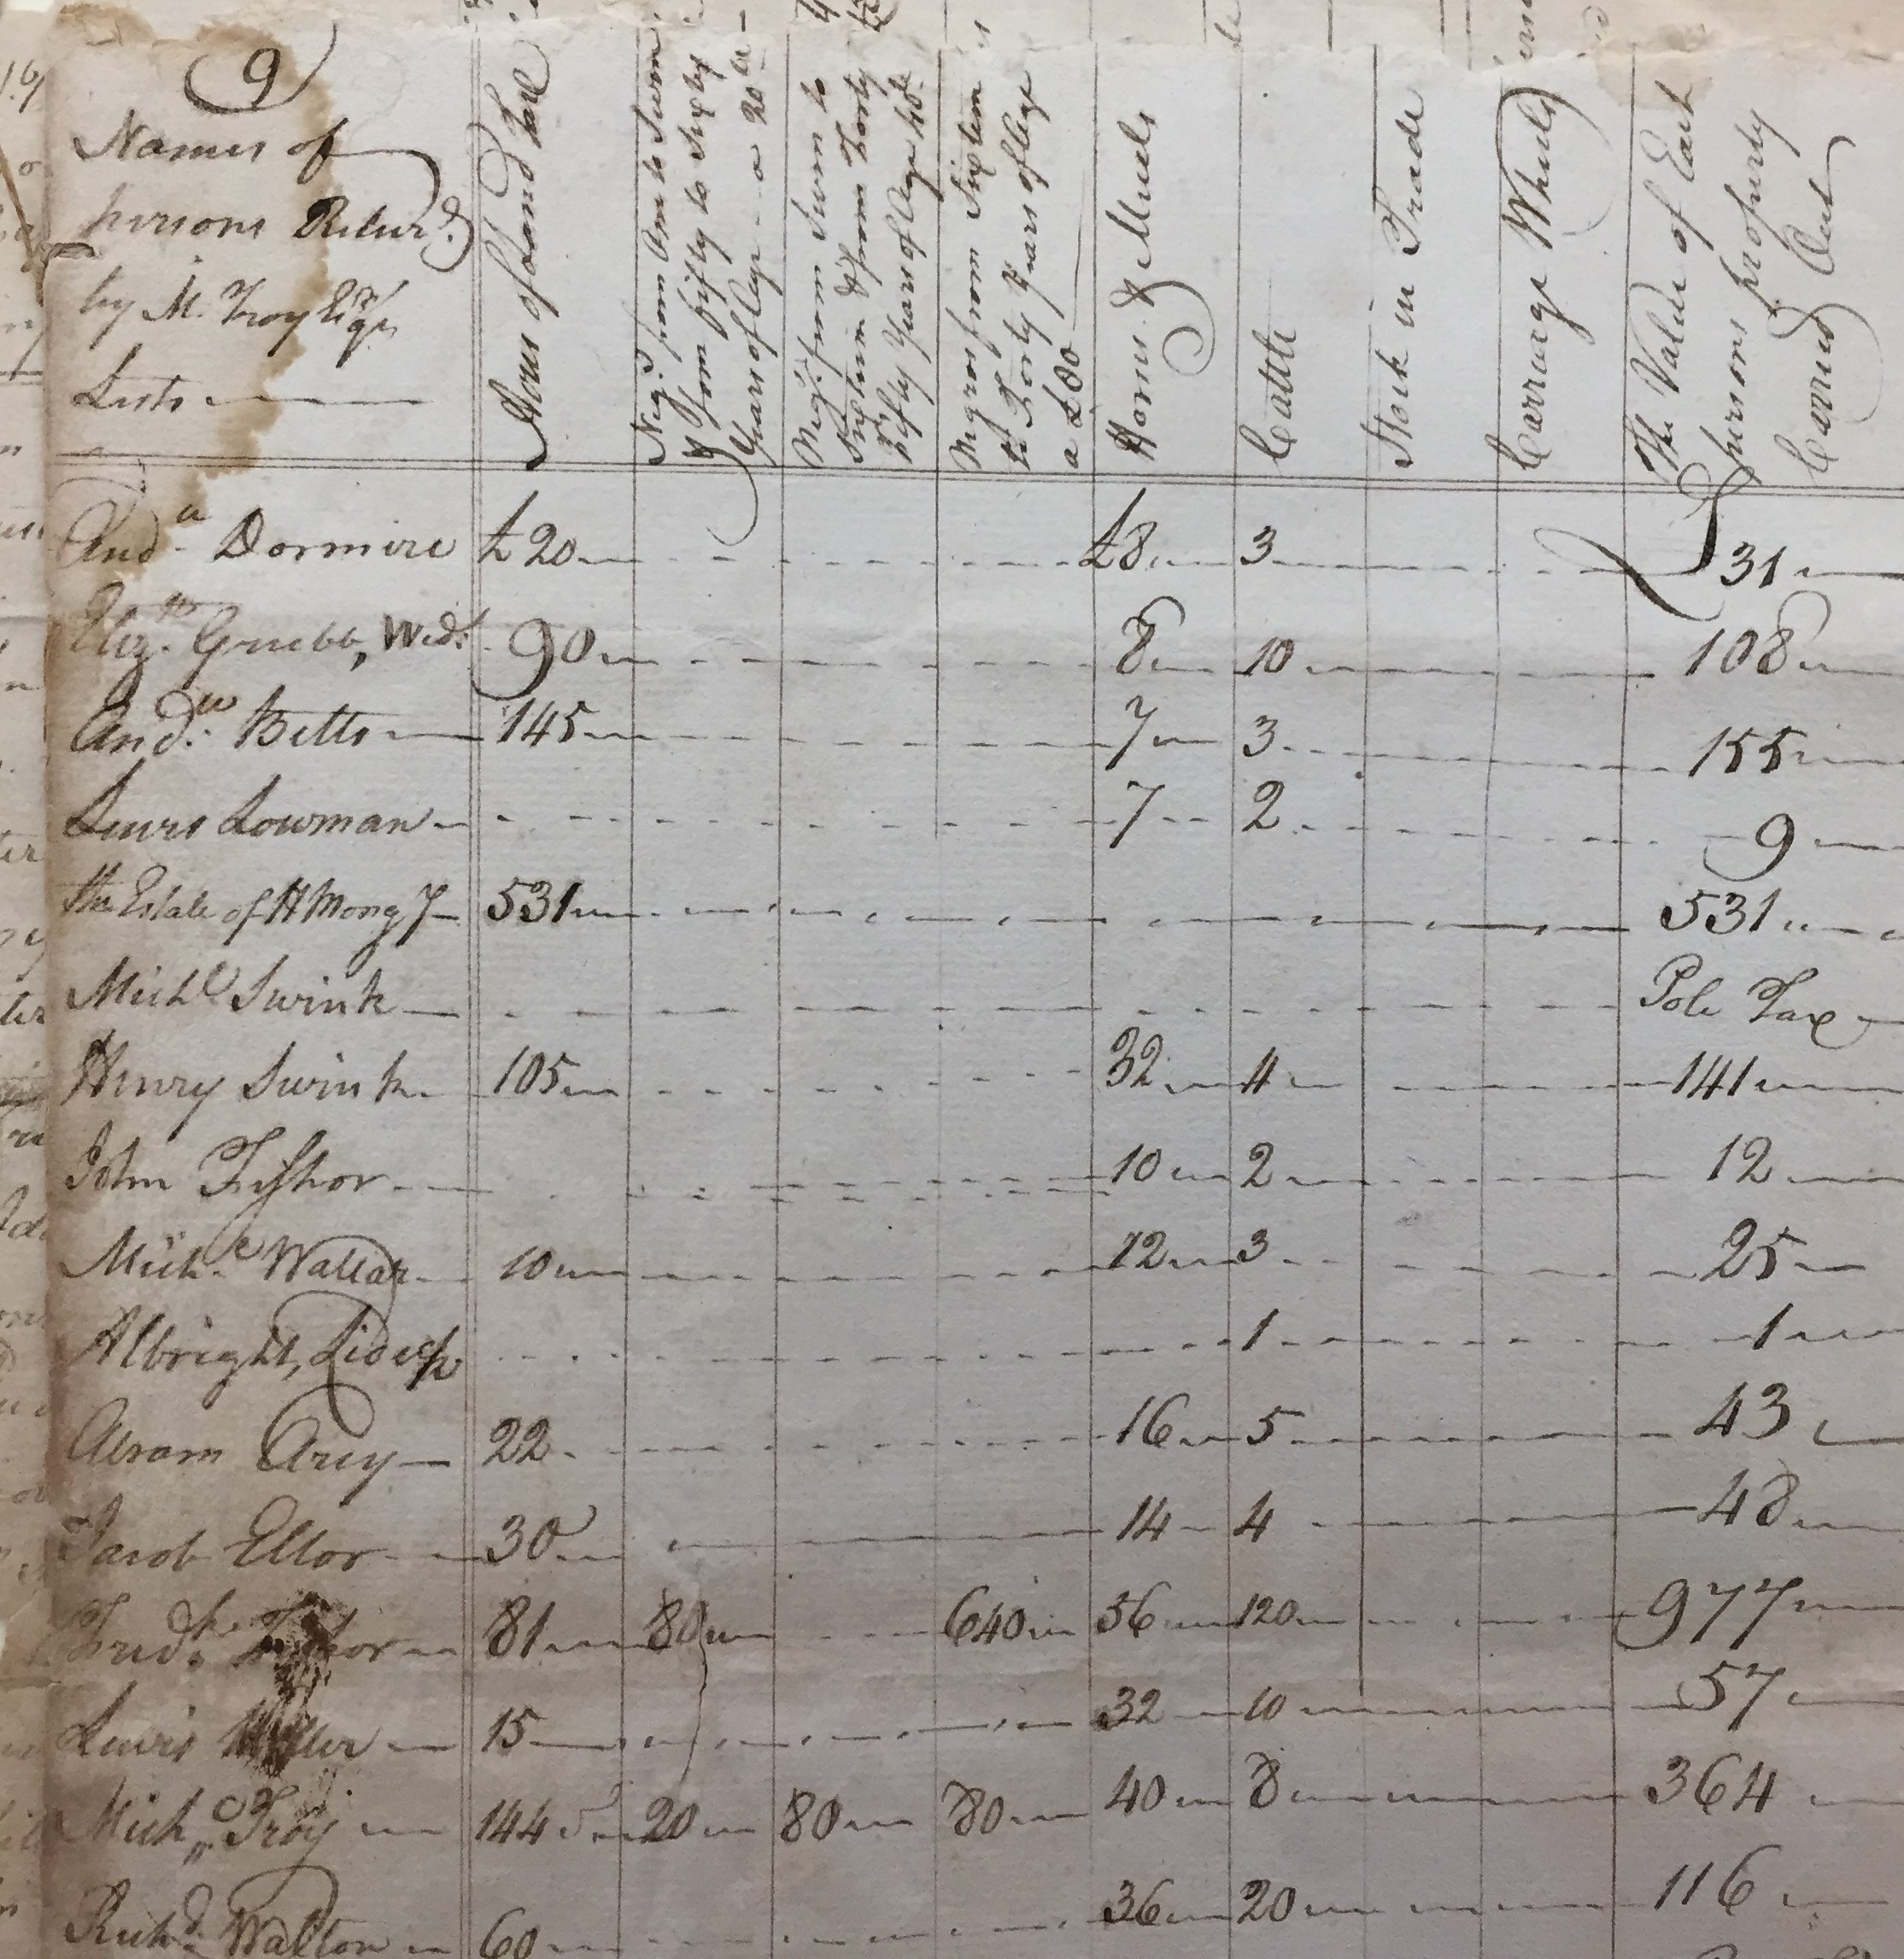 9
Names of
persons Returd.
by M. Troy Esqr
Lists
Acres of Land Taxl
Neg.s from One to Seven
& from fifty to Sixty
Years of Age - a 20 £ -
Neg.s from Seven to
Sixteen & from Forty
to Fifty Years of Age 40£
Negros from Sixteen
to Forty Years of Age
a £80
Horses & Muels
Cattle
Stock in Trade
Carriage Wheels
The Value of Each
persons property
Carried Out
And.w Dormire £20 £8 3 31
Eliz.th Grubb, Wid. 90 8 10 108
And.w Betts 145 7 3 155
Lewis Lowman 7 2 9
the Estate of H Mong 531 531
Michl Swink Pole Tax
Henry Swink 105 32 4 141
John Fishor 10 2 12
Mich.l Wallar 10 12 3 25
Albright, 1 1
Abram Arey 22 16 5 43
Jacob Ellor 30 14 4 48
Fred.k Fishor 81 80 640 56 120 977
Lewis Miller 15 32 10 57
Mich Troy 144 20 80 80 40 8 364
Rich.d Walton 60 36 20 116